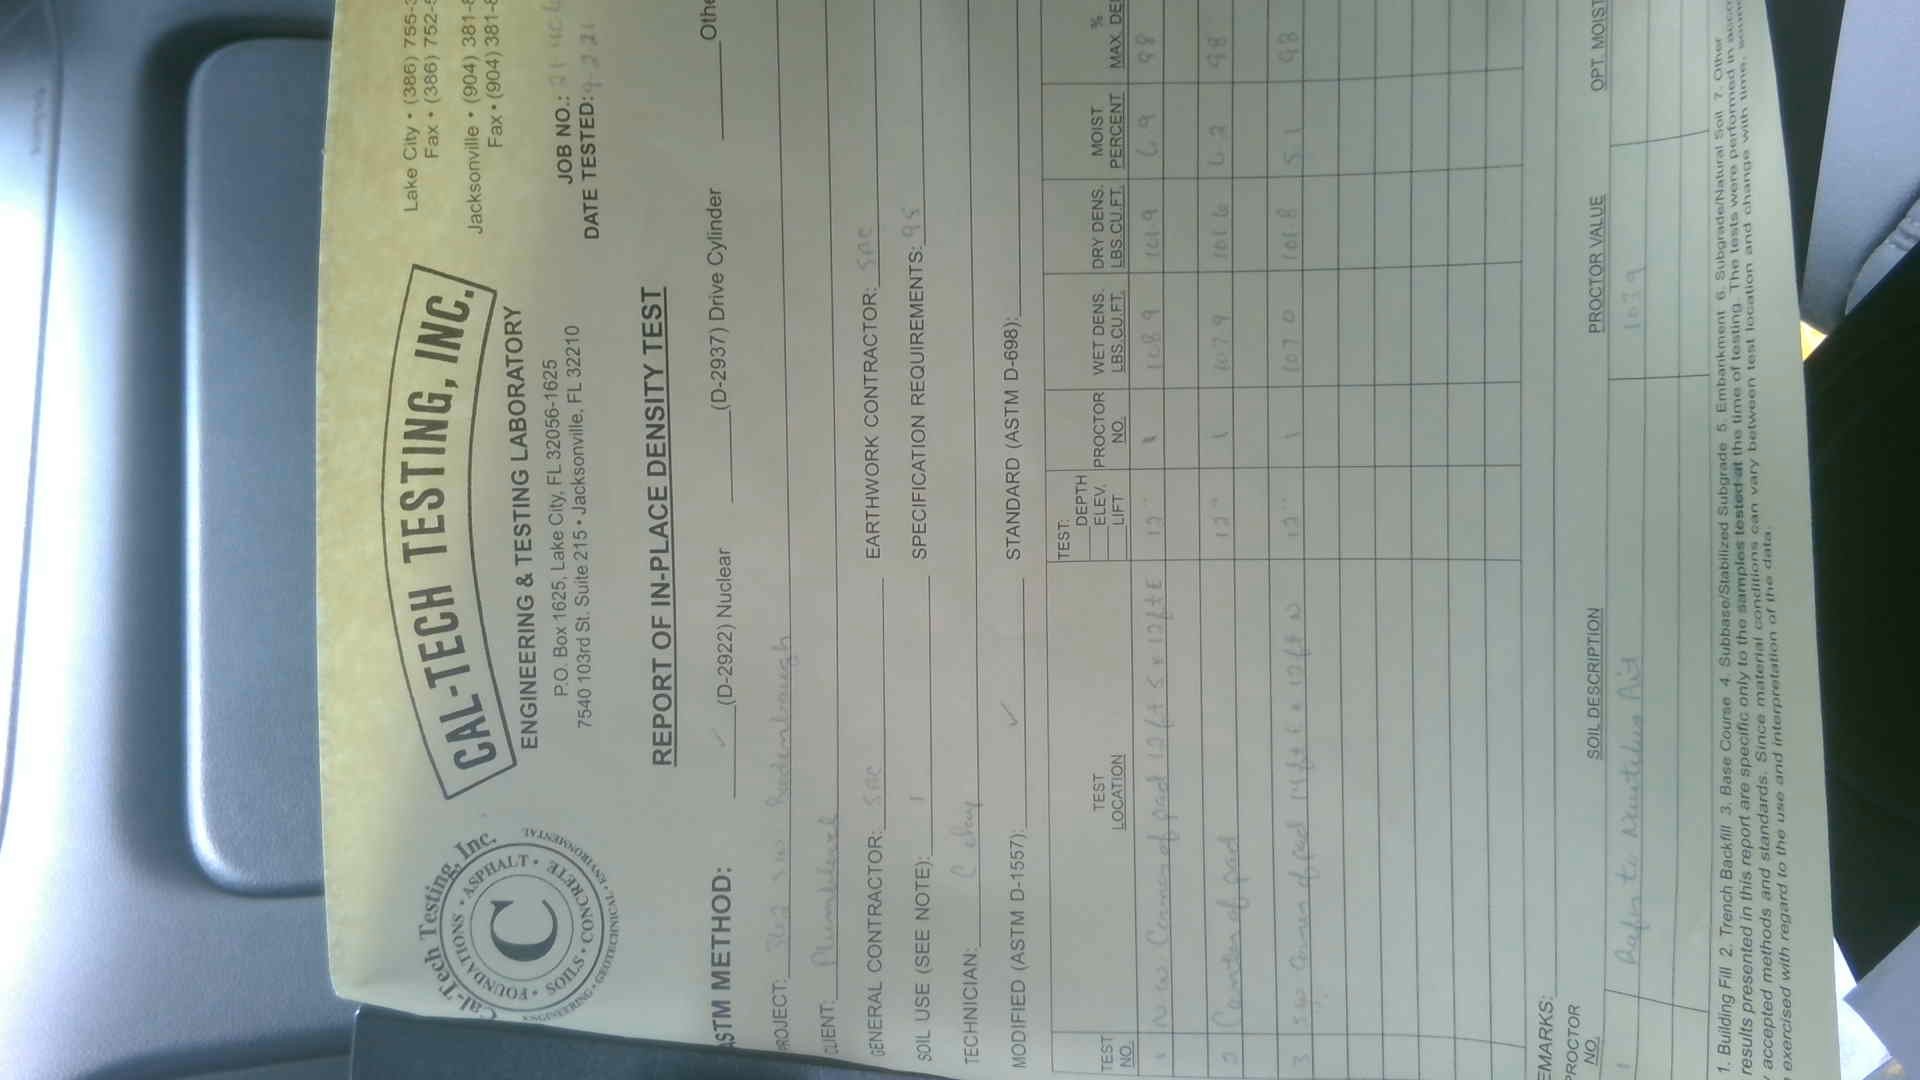 Cal-Tech Testing, Inc.
FOUNDATIONS • ASPHALT •
SOILS • CONCRETE
ENGINEERING • GEOTECHNICAL • ENVIRONMENTAL
C
CAL-TECH TESTING, INC.
ENGINEERING & TESTING LABORATORY
P.O. Box 1625, Lake City, FL 32056-1625
7540 103rd St. Suite 215 • Jacksonville, FL 32210
Lake City • (386) 755-3
Fax • (386) 752-5
Jacksonville • (904) 381-8
Fax • (904) 381-8
JOB NO.: 21
DATE TESTED: 9 2 21
REPORT OF IN-PLACE DENSITY TEST
ASTM METHOD: ✓ (D-2922) Nuclear (D-2937) Drive Cylinder Othe
PROJECT: S W
CLIENT: Plumb Level
GENERAL CONTRACTOR: SAC EARTHWORK CONTRACTOR: SAC
SOIL USE (SEE NOTE): 1 SPECIFICATION REQUIREMENTS: 95
TECHNICIAN: C
MODIFIED (ASTM D-1557): ✓ STANDARD (ASTM D-698):
TEST NO. TEST LOCATION TEST: DEPTH ELEV. LIFT PROCTOR NO. WET DENS. LBS.CU.FT. DRY DENS. LBS.CU.FT. MOIST PERCENT % MAX. DE
1 N W Corner of pad 12ft S x 12ft E 12" 1 108.9 101.9 6.9 98
2 Center of pad 12" 1 107.9 101.6 6.2 98
3 S W Corner of pad 14ft E x 12ft N 12" 1 107.0 101.8 5.1 98
EMARKS:
PROCTOR NO. SOIL DESCRIPTION PROCTOR VALUE OPT. MOIST
1 Refer to Nautilus Pit 103.9
1. Building Fill 2. Trench Backfill 3. Base Course 4. Subbase/Stabilized Subgrade 5. Embankment 6. Subgrade/Natural Soil 7. Other
results presented in this report are specific only to the samples tested at the time of testing. The tests were performed in acco
accepted methods and standards. Since material conditions can vary between test location and change with time, soun
exercised with regard to the use and interpretation of the data.